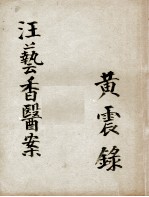 黃震錄
汪藝香醫案